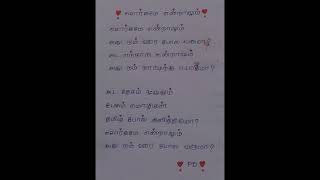 சொர்க்கமே என்றாலும்
சொர்க்கமே என்றாலும்
அது நம் ஊரை போல வருமா?
அட என்நாடு என்றாலும்
அது நம் நாட்டுக்கு ஈடாகுமா?
பல தேசம் முழுதும்
பேசும் மொழிகள்
தமிழ் போல் இனித்திடுமா?
சொர்க்கமே என்றாலும்
அது நம் ஊரை போல வருமா?
PD